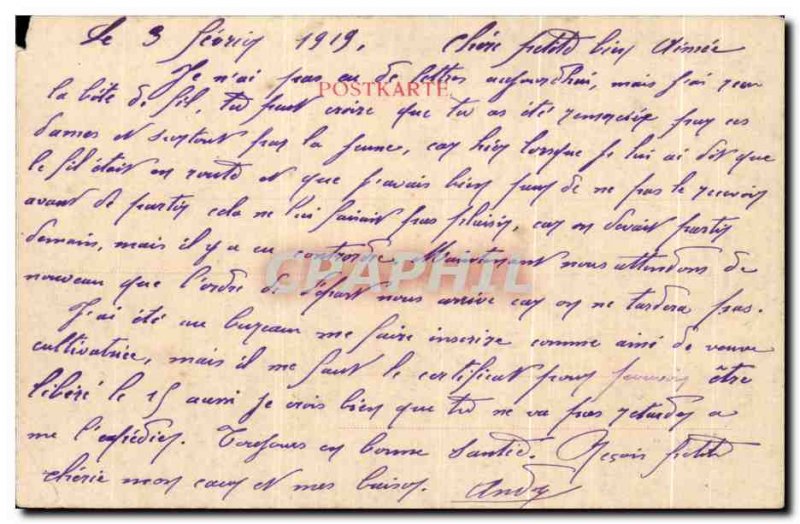 Le 3 février 1919, Chère petite bien Aimée
Je n'ai pas eu de lettres aujourdhui, mais j'ai reçu
POSTKARTE
la boîte de fil, tu peut croire que tu as été remerciée par ces
dames et surtout par la jeune, car hier lorsque je lui ai dit que
le fil était en route et que j'avais bien peur de ne pas le recevoir
avant de partir cela ne lui faisait pas plaisir, car on devait partir
demain, mais il y a eu contrordre. Maintenant nous attendons de
nouveau que l'ordre de départ nous arrive car on ne tardera pas.
CPAPHIL
J'ai été au bureau me faire inscrire comme ainé de veuve
cultivatrice, mais il me faut le certificat pour pouvoir être
libéré le 15 aussi je crois bien que tu ne va pas retarder a
me l'expédier. Toujours en bonne santé. Reçois petite
chérie mon cœur et mes baisers. André